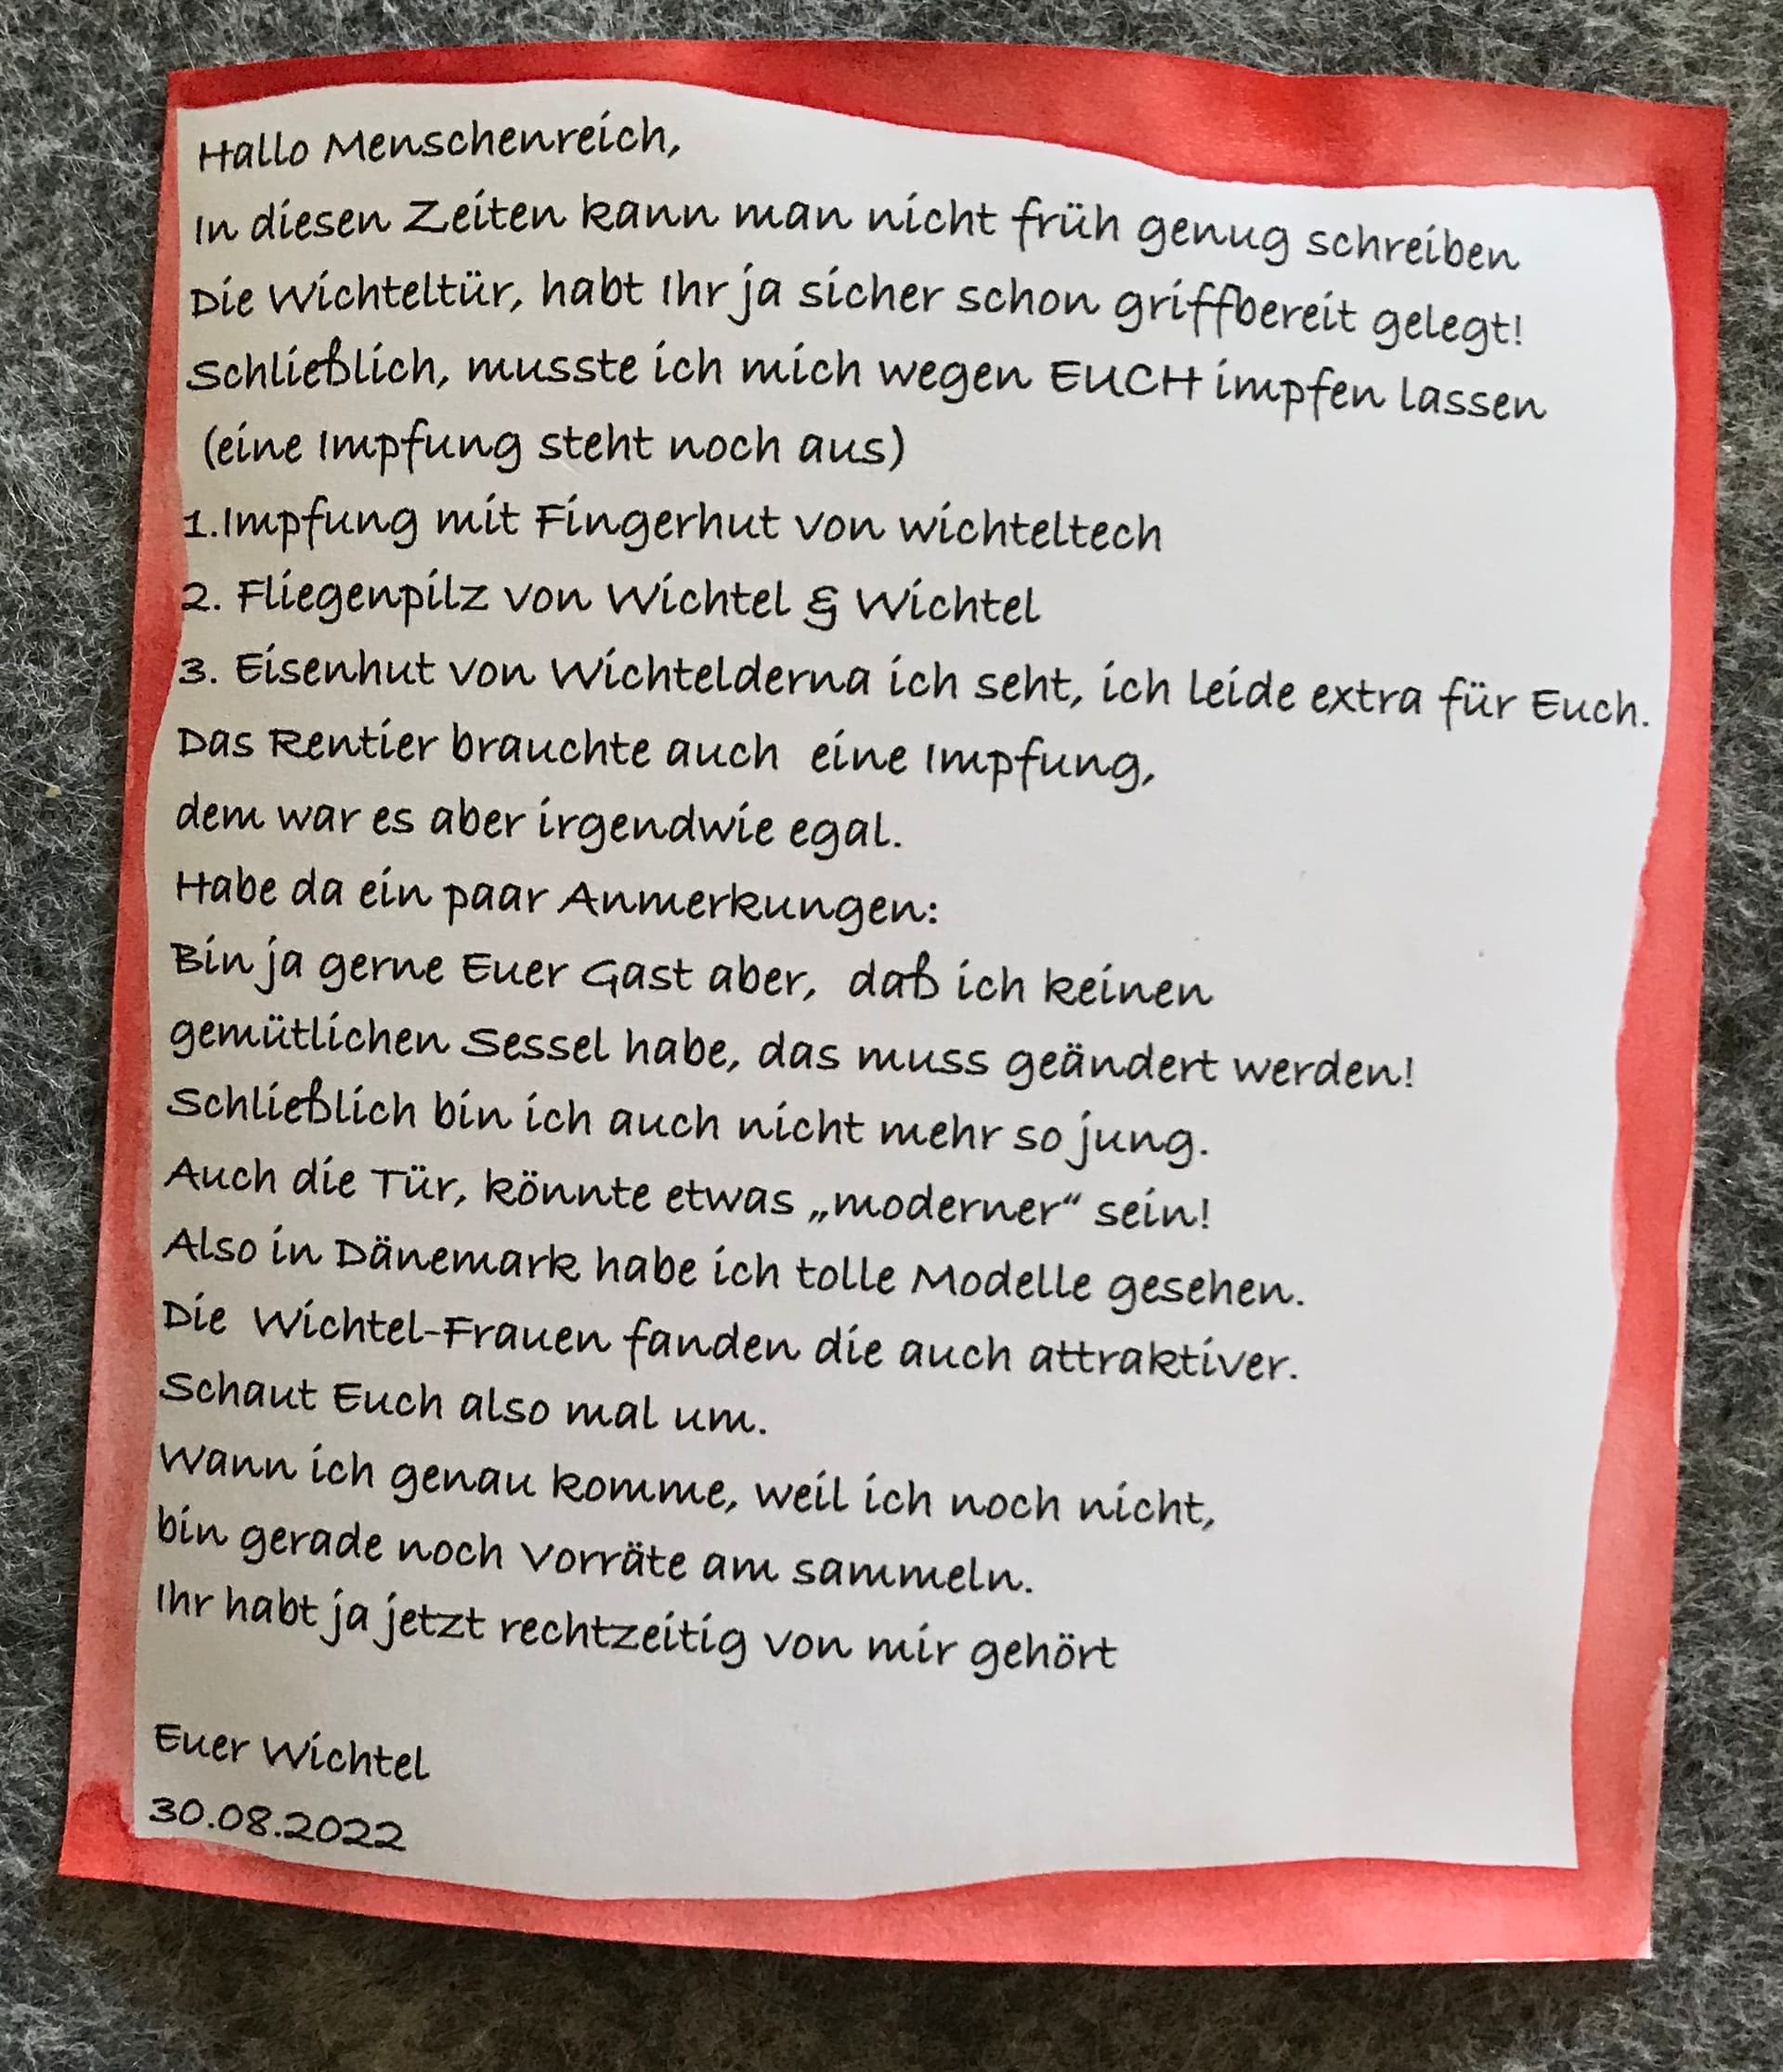 Hallo Menschenreich,
In diesen Zeiten kann man nicht früh genug schreiben
Die Wichteltür, habt Ihr ja sicher schon griffbereit gelegt!
Schließlich, musste ich mich wegen EUCH impfen lassen
(eine Impfung steht noch aus)
1.Impfung mit Fingerhut von wichteltech
2. Fliegenpilz von Wichtel & Wichtel
3. Eisenhut von Wichtelderna ich seht, ich leide extra für Euch.
Das Rentier brauchte auch eine Impfung,
dem war es aber irgendwie egal.
Habe da ein paar Anmerkungen:
Bin ja gerne Euer Gast aber, daß ich keinen
gemütlichen Sessel habe, das muss geändert werden!
Schließlich bin ich auch nicht mehr so jung.
Auch die Tür, könnte etwas „moderner“ sein!
Also in Dänemark habe ich tolle Modelle gesehen.
Die Wichtel-Frauen fanden die auch attraktiver.
Schaut Euch also mal um.
Wann ich genau komme, weil ich noch nicht,
bin gerade noch Vorräte am sammeln.
Ihr habt ja jetzt rechtzeitig von mir gehört
Euer Wichtel
30.08.2022